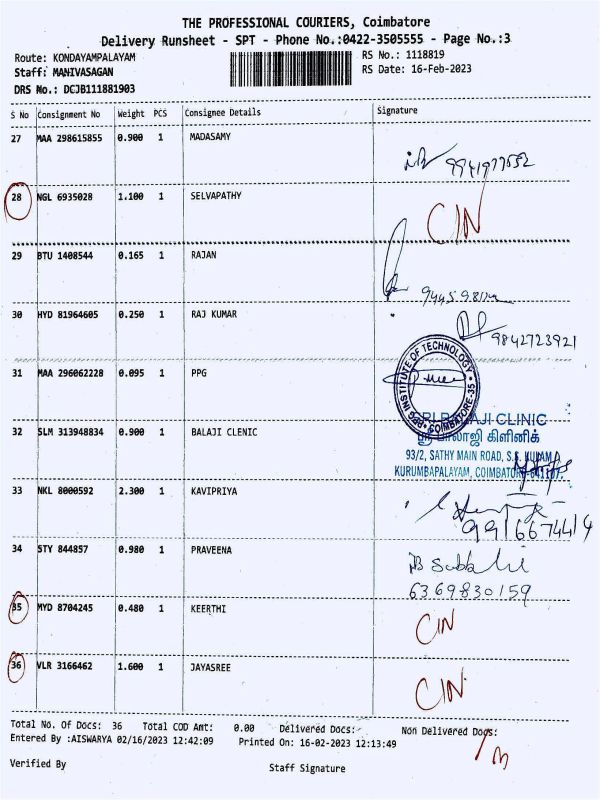 THE PROFESSIONAL COURIERS, Coimbatore
Delivery Runsheet - SPT - Phone No.:0422-3505555 - Page No.:3
Route: KONDAYAMPALAYAM
RS No.: 1118819
Staff: MANIVASAGAN
RS Date: 16-Feb-2023
DRS No.: DCJB111881903
S No Consignment No Weight PCS Consignee Details Signature
27 MAA 298615855 0.900 1 MADASAMY
28 NGL 6935028 1.100 1 SELVAPATHY CIN
29 BTU 1408544 0.165 1 RAJAN
30 HYD 81964605 0.250 1 RAJ KUMAR 9842723921
31 MAA 296062228 0.095 1 PPG
INSTITUTE OF TECHNOLOGY PPG COIMBATORE-35
32 SLM 313948834 0.900 1 BALAJI CLENIC
SRI BALAJI CLINIC
ஸ்ரீ பாலாஜி கிளினிக்
93/2, SATHY MAIN ROAD, S.S. KULAM
KURUMBAPALAYAM, COIMBATORE-641107.
33 NKL 8000592 2.300 1 KAVIPRIYA 9916674414
34 STY 844857 0.980 1 PRAVEENA
6369830159
35 MYD 8704245 0.480 1 KEERTHI CIN
36 VLR 3166462 1.600 1 JAYASREE CIN
Total No. Of Docs: 36 Total COD Amt: 0.00 Delivered Docs: Non Delivered Docs:
Entered By :AISWARYA 02/16/2023 12:42:09 Printed On: 16-02-2023 12:13:49
Verified By Staff Signature